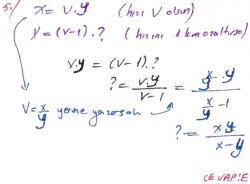 5-) x = v.y (hızı V olsun)
y = (v-1).? (hızını 1 km azaltırsa)
v.y = (v-1).?
? = v.y / v-1 = x/y . y / x/y - 1
V = x/y yerine yazarsak
? = xy / x-y
CEVAP: E